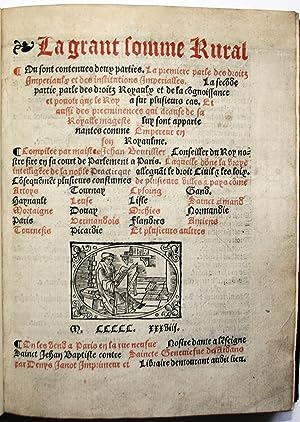 La grant somme Rural
¶ Ou sont contenues deux parties. La premiere parle des droitz
Imperiaulx et des institutions Imperialles. La seconde
partie parle des droitz Royaulx et de la congnoissance
et pouoir que le Roy a sur plusieurs cas. Et
aussi des preeminences qui a cause de sa
Royalle mageste luy sont apparte
nantes comme Empereur en
son Royaulme.
¶ Compilee par maistre Jehan Bouteiller Conseiller du Roy no
stre sire en sa court de Parlement a Paris. Laquelle done la vraye
intelligēce de la noble Practicque allegāt le droit Ciuil & les loix.
Cōsequēment plusieurs coustumes de plusieurs villes & pays cōme
Artoys Tournay Cysoing Gand,
Haynault Leuse Lisle Sainct Amand
Mortaigne Douay Orchies Normandie
Paris Vermandois Flandres Amiens
Tournesis Picardie Et plusieurs aultres
M. CCCCC. XXXviii.
¶ On les vend a Paris en la rue neufue Nostre dame a lēseigne
Sainct Jehan Baptiste contre Saincte Geneuiefue des Ardans
par Denys Janot Imprimeur et Libraire demourant audit lieu.